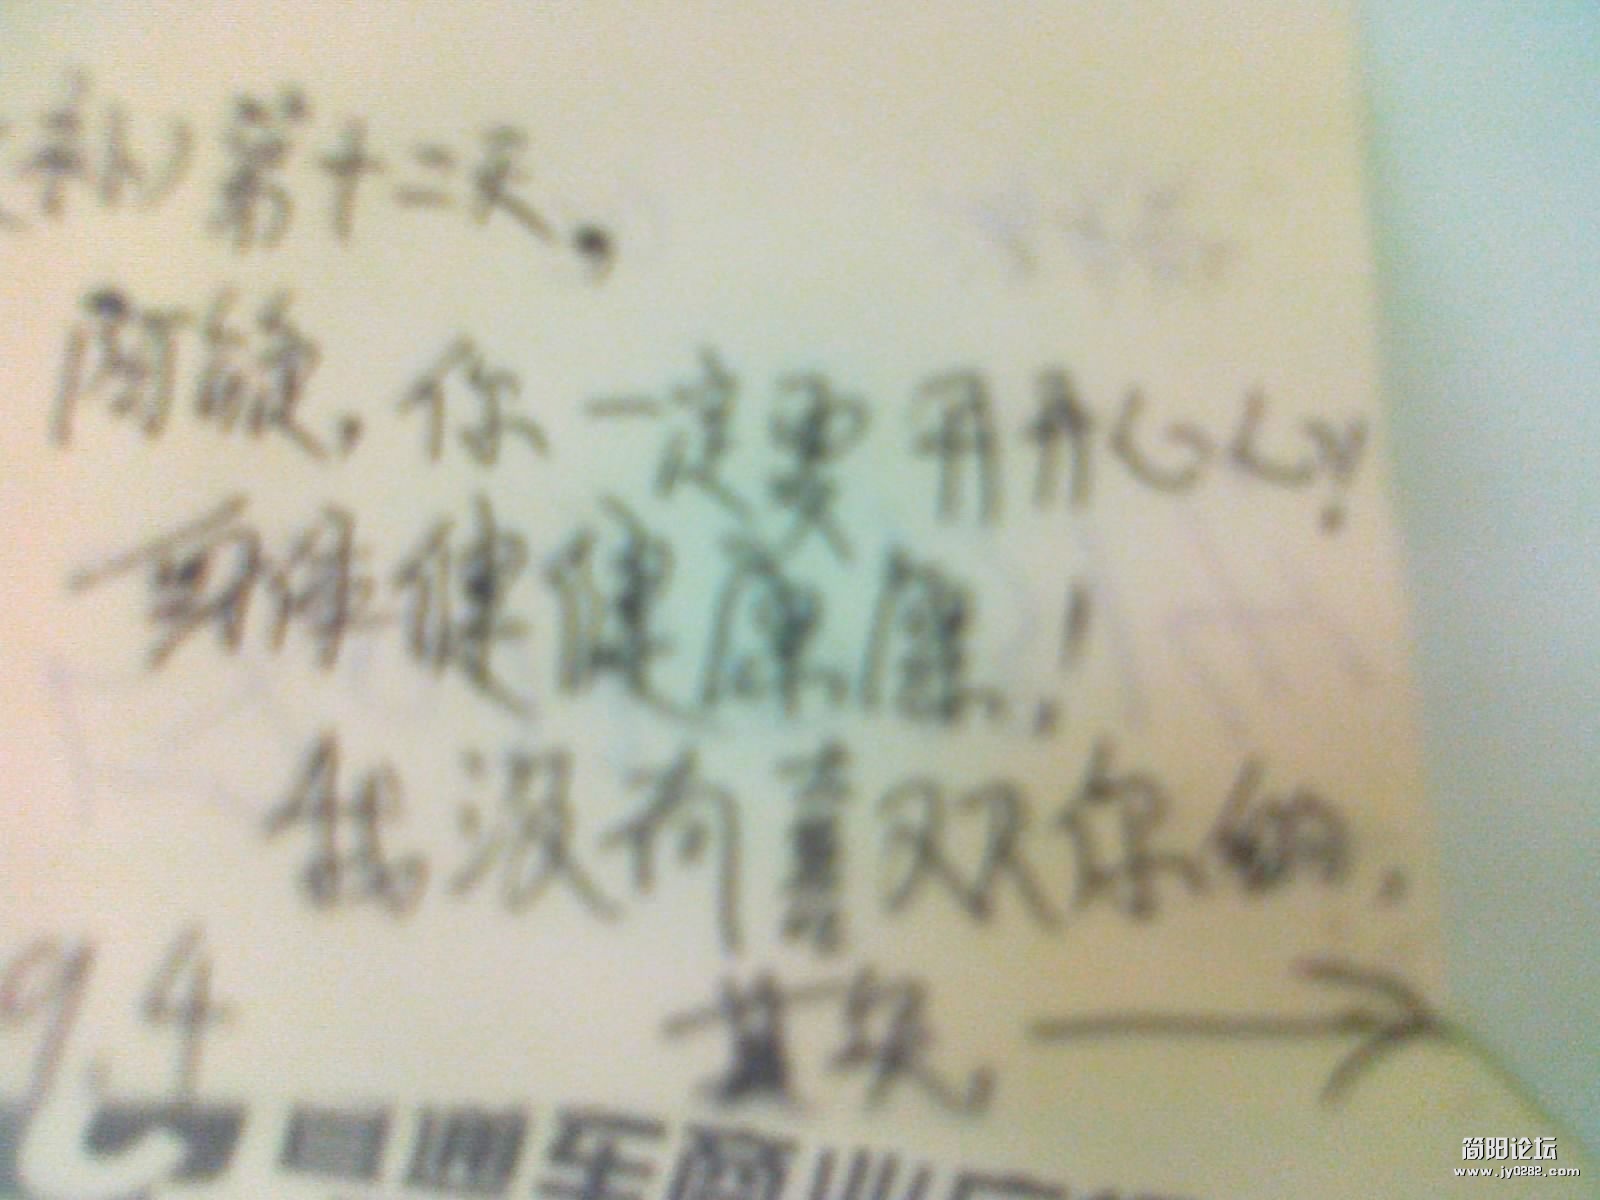 补)第十二天.
阿 , 你一定要开开心心!
身体健健康康!
我没有喜欢你的.
9.4
→
通车商业
简阳论坛
www.jy0282.com